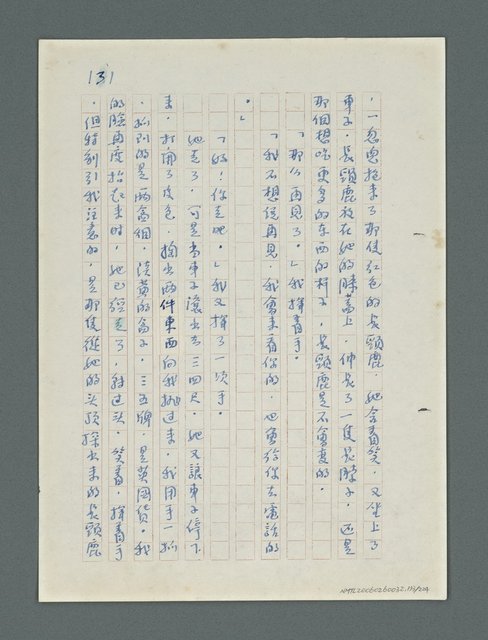 131
，一忽兒抱來了那隻紅色的長頸鹿，她含着笑，又坐上了
車子，長頸鹿放在她的膝蓋上，伸長了一隻長脖子，還是
那個想吃更多的東西的样子，長頸鹿是不會变的。
「那么再見了。」我揮着手。
「我不想說再見，我會來看你的，也會给你去電話的
。」
「好！你走吧。」我又揮了一次手。
她走了，可是當車子滚出去三四尺，她又讓車子停下
來，打開了皮包，掏出兩件東西向我拋过來，我用手一抓
，抓到的是兩盒烟，淡黄的盒子，三五牌，是英國貨。我
的臉再度抬起來時，她已經走了，斜过头，笑着，揮着手
，但特别引我注意的，是那隻從她的头頂探出來的長頸鹿
NMTL20060260032,113/204